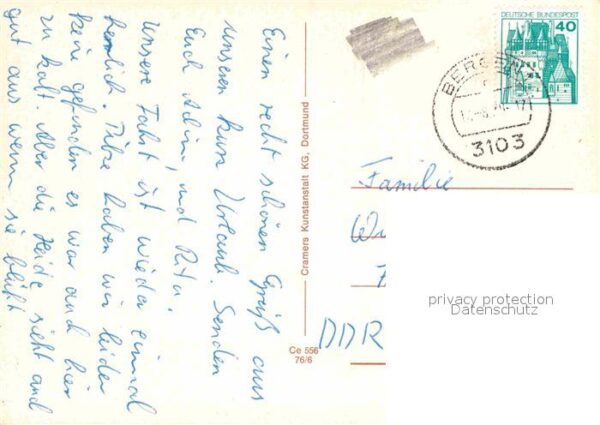 Einen recht schönen Gruß aus
unseren kurz Urlaub. Senden
Euch Achim, und Rita.
Unsere Fahrt ist wieder einmal
herrlich. Pilze haben wir leider
keine gefunden es war auch hier
zu kalt. Aber die Heide sieht and
gut aus wenn sie blüht
Cramers Kunstanstalt KG, Dortmund
Ce 556
76/6
DEUTSCHE BUNDESPOST
40
BERGEN
3103
Familie
DDR
privacy protection
Datenschutz